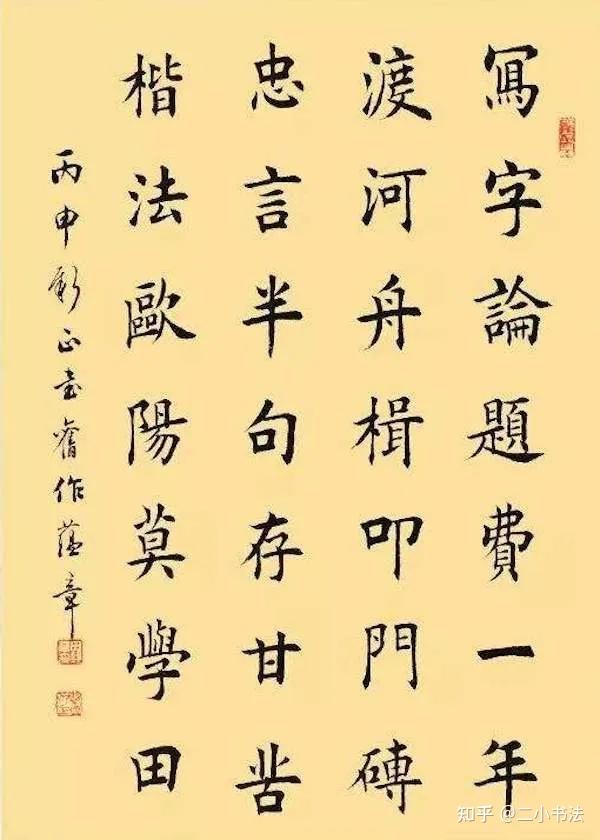 寫字論題費一年
渡河舟楫叩門磚
忠言半句存甘苦
楷法歐陽莫學田
丙申新正書舊作蘊章
知乎 @二小书法